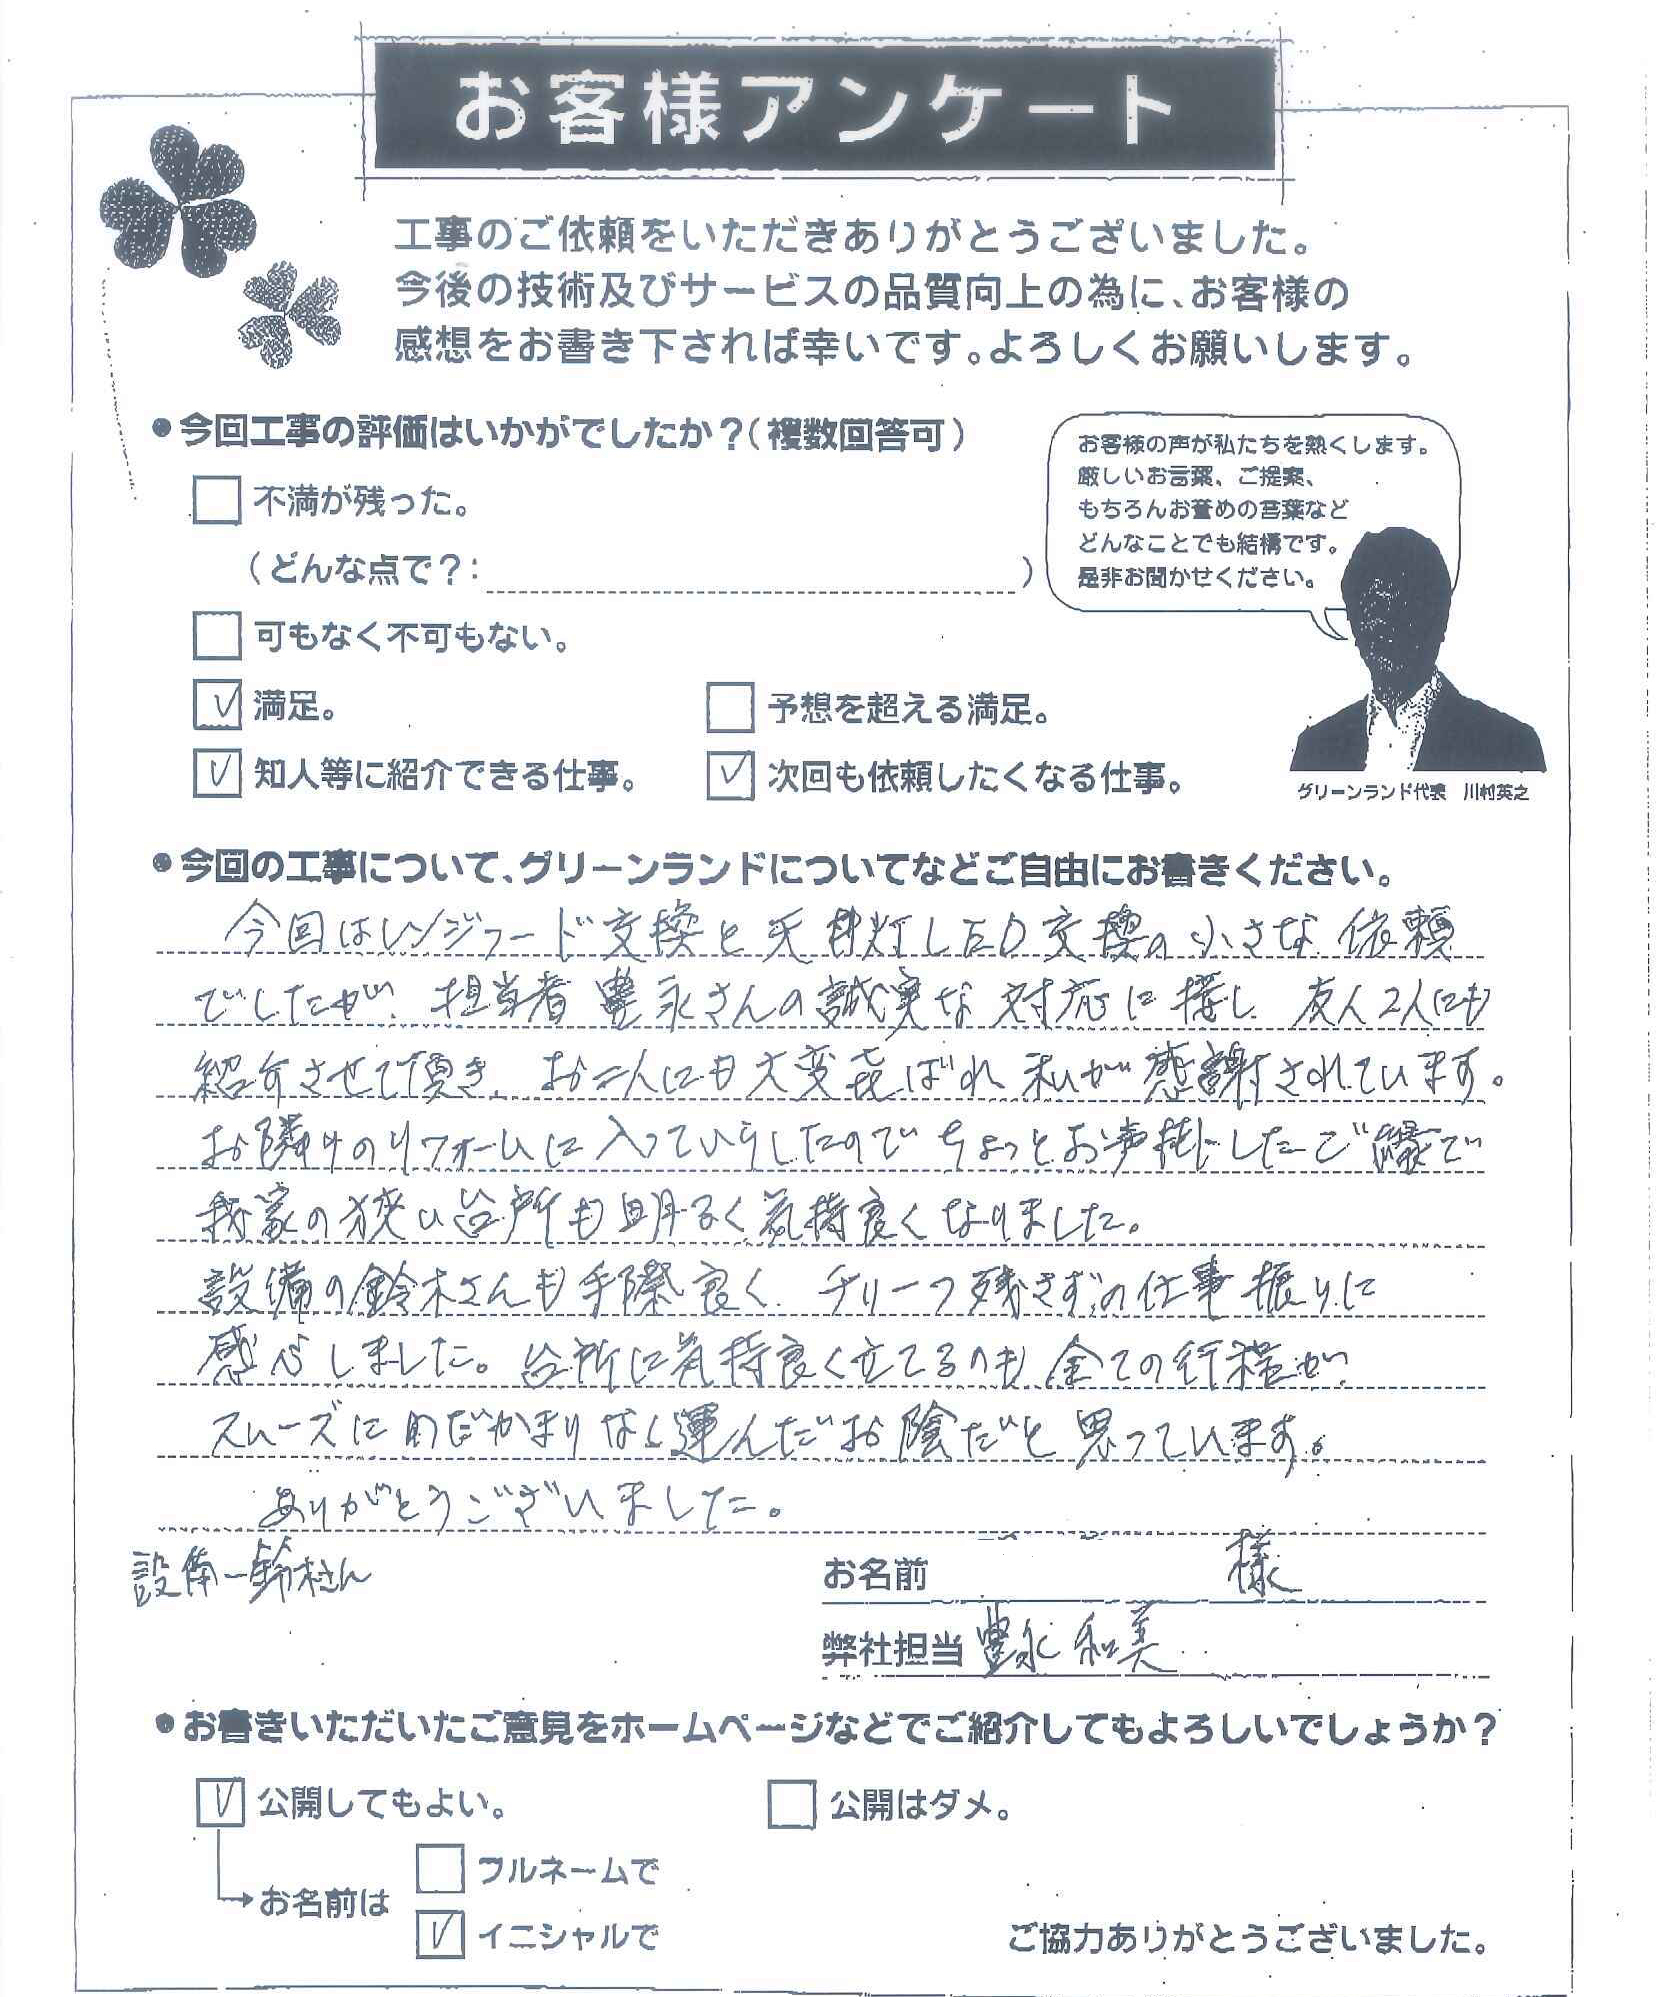 お客様アンケート
工事のご依頼をいただきありがとうございました。
今後の技術及びサービスの品質向上の為に、お客様の
感想をお書き下されば幸いです。よろしくお願いします。
●今回工事の評価はいかがでしたか?(複数回答可)
お客様の声が私たちを熱くします。
厳しいお言葉、ご提案、
もちろんお誉めの言葉など
どんなことでも結構です。
是非お聞かせください。
不満が残った。
(どんな点で?: )
可もなく不可もない。
満足。
予想を超える満足。
知人等に紹介できる仕事。
次回も依頼したくなる仕事。
グリーンランド代表 川村英之
●今回の工事について、グリーンランドについてなどご自由にお書きください。
今回はレンジフード交換と天井灯LED交換の小さな依頼
でしたが、担当者豊永さんの誠実な対応に接し、友人2人にも
紹介させて頂き、お二人にも大変喜ばれ私が感謝されています。
お隣りのリフォームに入っていらしたのでちょっとお声掛けしたご縁で
我家の狭い台所も明るく気持良くなりました。
設備の鈴木さんも手際良く、チリ一つ残さずの仕事振りに
感心しました。台所に気持良く立てるのも全ての行程が
スムーズにわだかまりなく運んだお陰だと思っています。
ありがとうございました。
設備→鈴木さん
お名前 様
弊社担当 豊永 和美
●お書きいただいたご意見をホームページなどでご紹介してもよろしいでしょうか?
公開してもよい。
公開はダメ。
フルネームで
お名前は
イニシャルで
ご協力ありがとうございました。